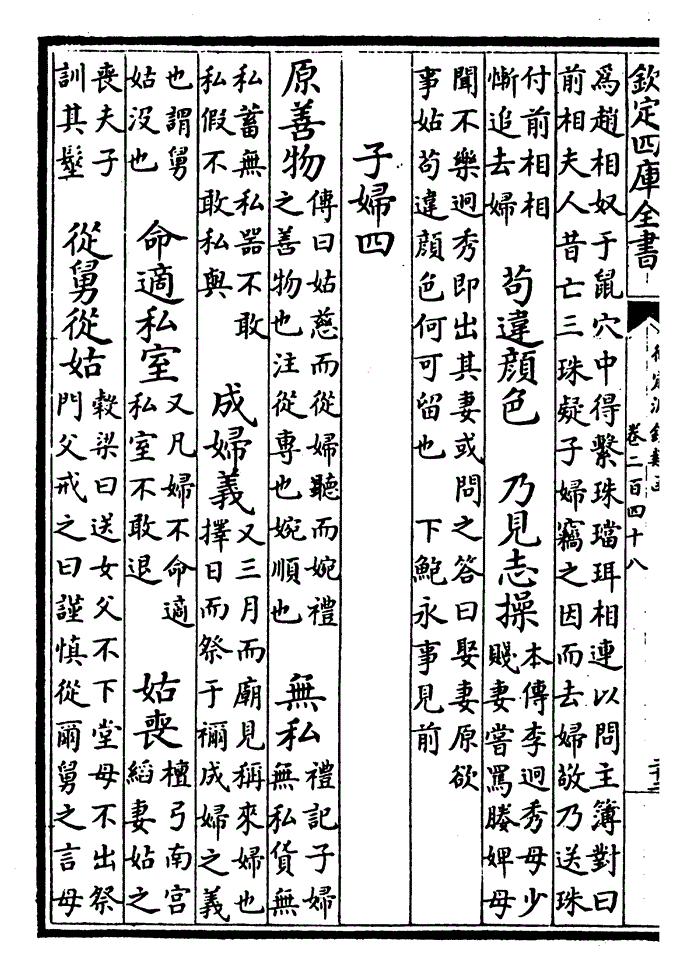 欽定四庫全書
卷二百四十八
爲趙相奴于鼠穴中得繫珠璫珥相連以問主簿對曰
前相夫人昔亡三珠疑子婦竊之因而去婦敬乃送珠
付前相相
慚追去婦
苟違顔色
乃見志操
本傳李迥秀母少
賤妻嘗罵媵婢母
聞不樂迥秀即出其妻或問之答曰娶妻原欲
事姑苟違顔色何可留也 下鮑永事見前
子婦四
原善物
傳曰姑慈而從婦聽而婉禮
之善物也注從專也婉順也
無私
禮記子婦
無私貨無
私蓄無私器不敢
私假不敢私與
成婦義
又三月而廟見稱來婦也
擇日而祭于禰成婦之義
也謂舅
姑沒也
命適私室
又凡婦不命適
私室不敢退
姑喪
檀弓南宮
縚妻姑之
喪夫子
訓其髽
從舅從姑
穀梁曰送女父不下堂母不出祭
門父戒之曰謹慎從爾舅之言母